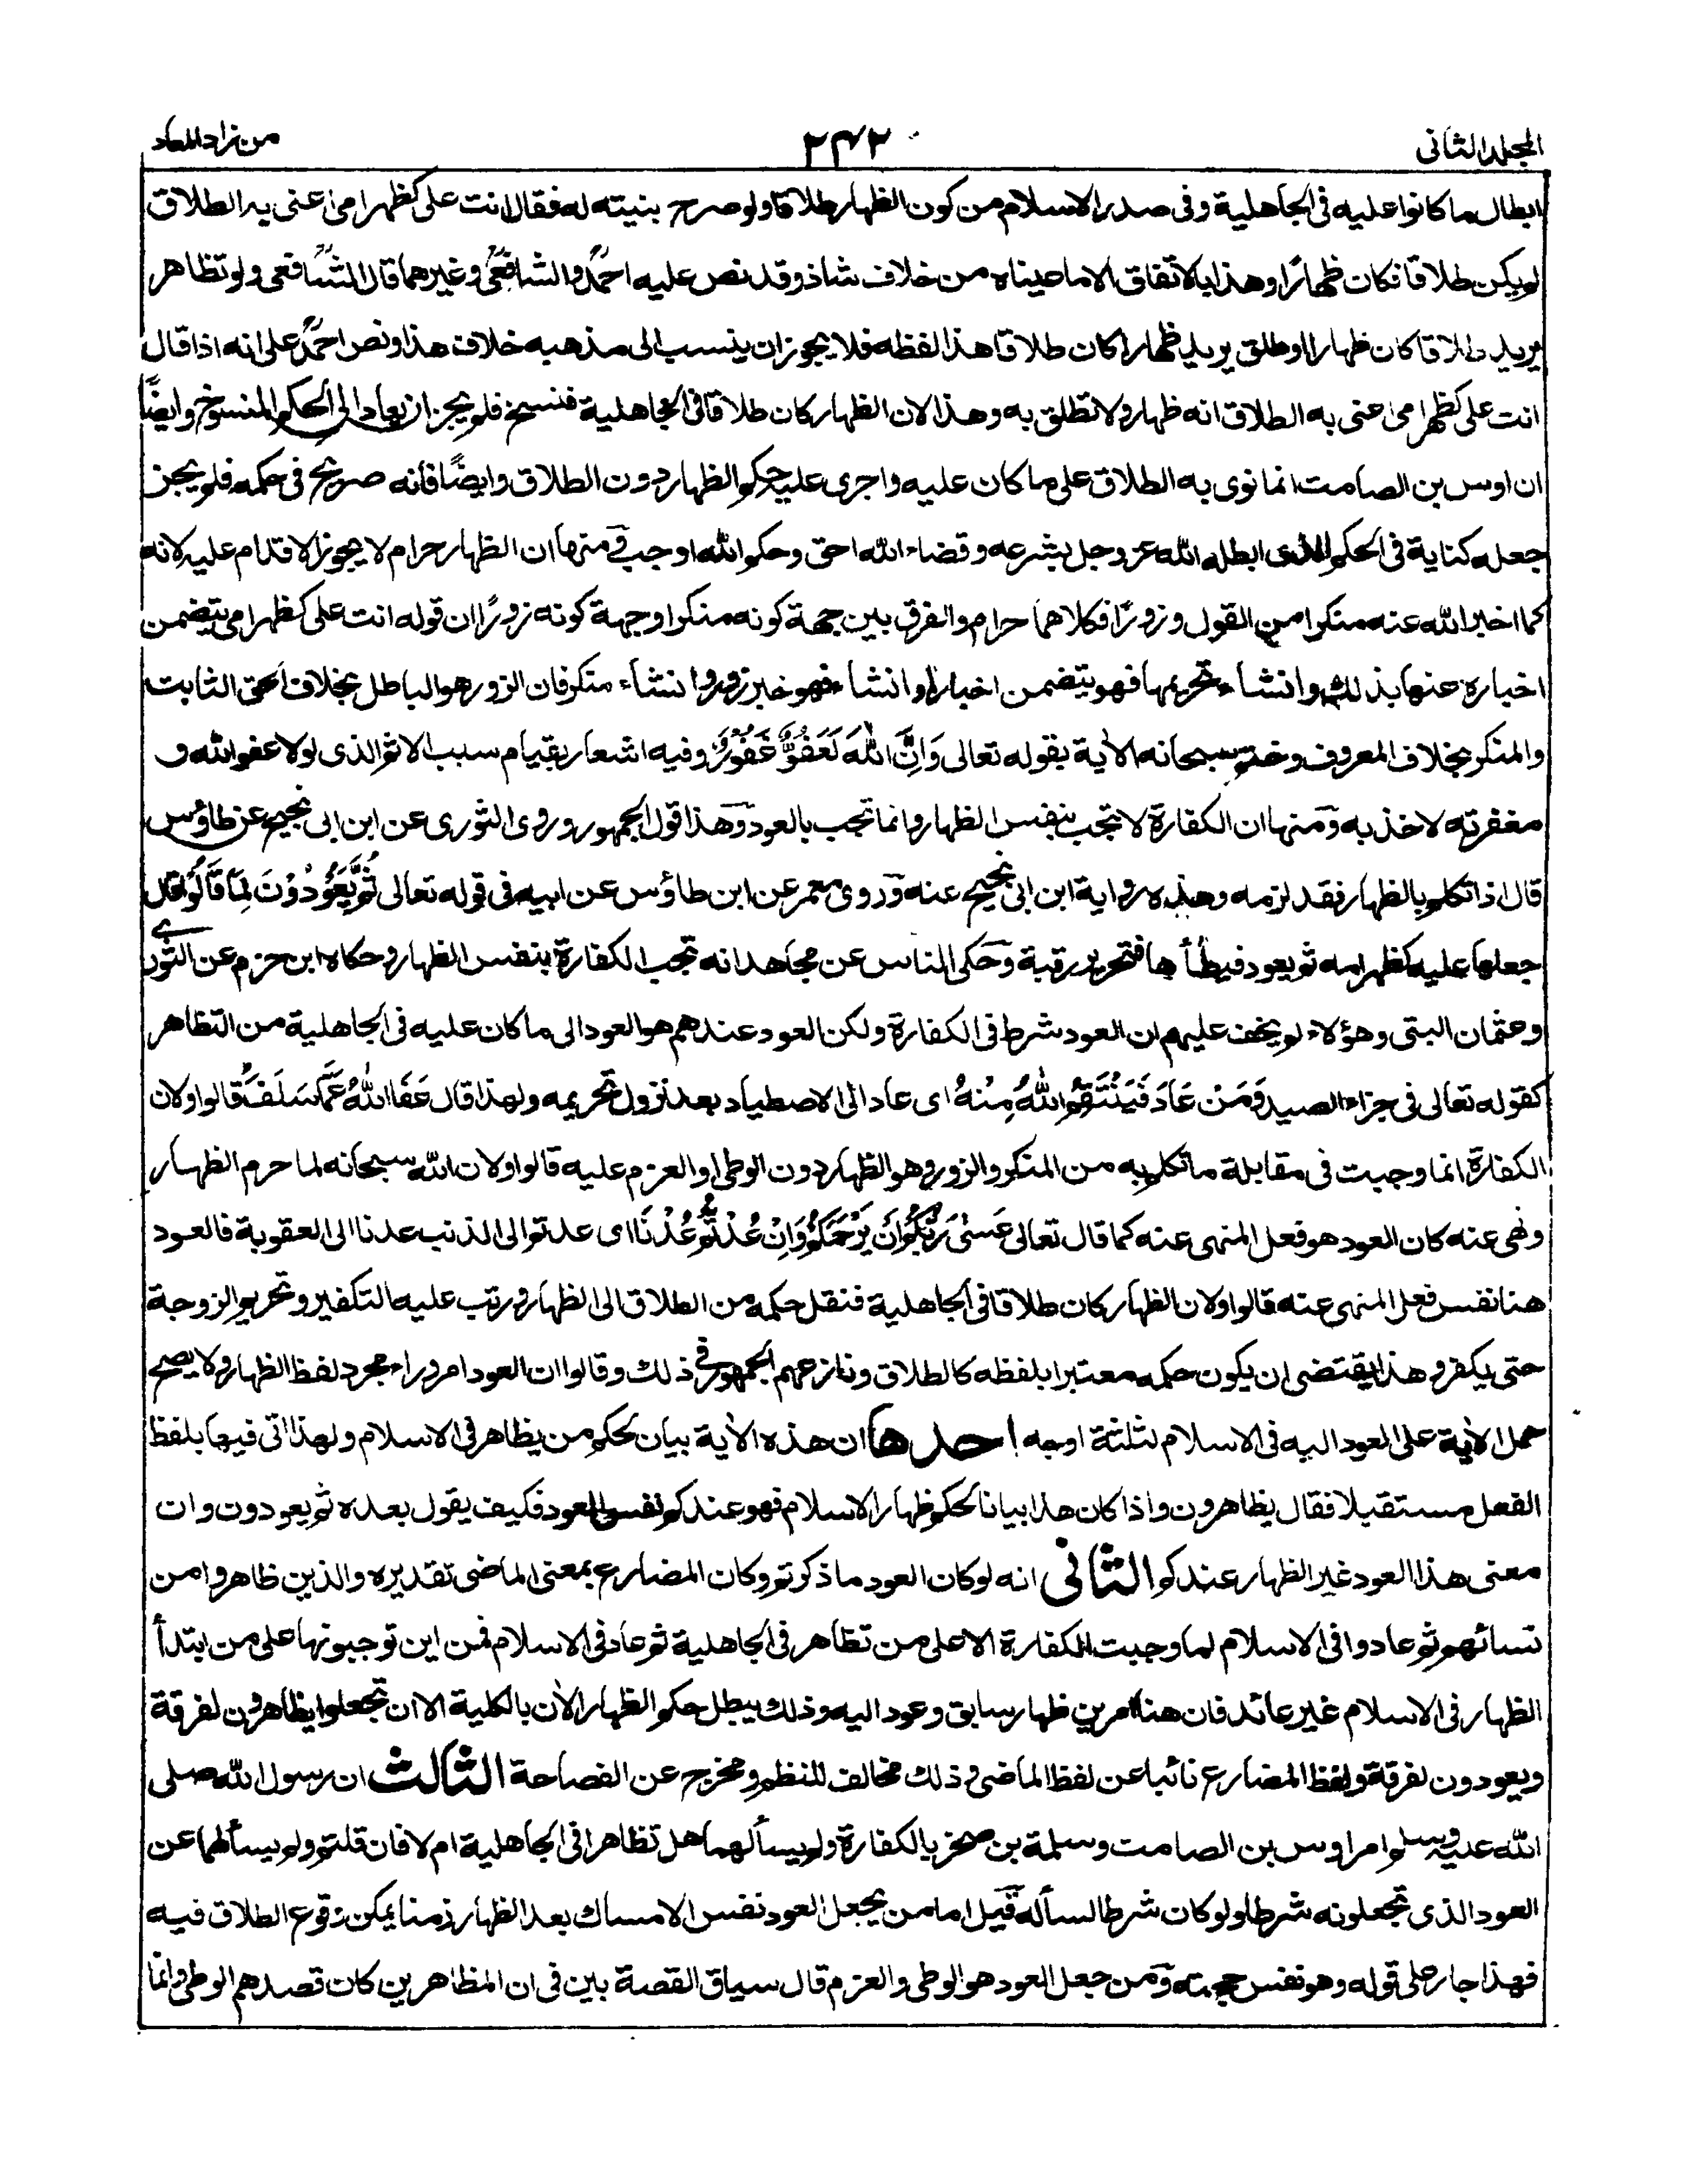 المجلد الثانى
٢٤٢
من زاد المعاد
ابطال ما كانوا عليه فى الجاهلية وفى صدر الاسلام من كون الظهار طلاقا ولو صرح بنيته له فقال انت على كظهر امى اعنى به الطلاق
لم يكن طلاقا فكان ظهارًا وهذا بالاتفاق الا ما حيناه من خلاف شاذ وقد نص عليه احمدؒ والشافعىؒ وغيرهما قال الشافعى ولو تظاهر
يريد طلاقا كان ظهارا او طلق يريد ظهارا كان طلاقا هذا لفظه فلا يجوز ان ينسب الى مذهبه خلاف هذا ونص احمدؒ على انه اذا قال
انت على كظهر امى اعنى به الطلاق انه ظهار ولا تطلق به وهذا لان الظهار كان طلاقا فى الجاهلية فنسخ فلم يجز ان يعاد الى الحكم المنسوخ وايضًا
ان اوس بن الصامت انما نوى به الطلاق على ما كان عليه واجرى عليه حكم الظهار دون الطلاق وايضًا فانه صريح فى حكمه فلم يجز
جعله كناية فى الحكم الذى ابطله الله عز وجل بشرعه وقضاء الله احق وحكم الله اوجب ومنها ان الظهار حرام لا يجوز الاقدام عليه لانه
كما اخبر الله عنه منكرا من القول وزورًا فكلاهما حرام والفرق بين جهة كونه منكرا وجهة كونه زورًا ان قوله انت على كظهر امى يتضمن
اخباره عنها بذلك وانشاء تحريمها فهو يتضمن اخبارا وانشاء فهو خبر زور وانشاء منكر فان الزور هو الباطل بخلاف الحق الثابت
والمنكر بخلاف المعروف وختم سبحانه الاية بقوله تعالى وَاِنَّ اللهَ لَعَفُوٌّ غَفُوْرٌ وفيه اشعار بقيام سبب الاثم الذى لولا عفو الله و
مغفرته لاخذ به ومنها ان الكفارة لا تجب بنفس الظهار وانما تجب بالعود وهذا قول الجمهور وروى الثورى عن ابن ابى نجيح عن طاؤس
قال اذا تكلم بالظهار فقد لزمه وهذه رواية ابن ابى نجيح عنه وروى معمر عن ابن طاؤس عن ابيه فى قوله تعالى ثُمَّ يَعُوْدُوْنَ لِمَا قَالُوْا قال
جعلها عليه كظهر امه ثم يعود فيطأها فتحرير رقبة وحكى الناس عن مجاهد انه تجب الكفارة بنفس الظهار وحكاه ابن حزم عن الثورى
وعثمان البتى وهؤلاء لم يخف عليهم ان العود شرط فى الكفارة ولكن العود عندهم هو العود الى ما كان عليه فى الجاهلية من التظاهر
كقوله تعالى فى جزاء الصيد وَمَنْ عَادَ فَيَنْتَقِمُ اللهُ مِنْهُ اى عاد الى الاصطياد بعد نزول تحريمه ولهذا قال عَفَا اللهُ عَمَّا سَلَفَ قالوا ولان
الكفارة انما وجبت فى مقابلة ما تكلم به من المنكر والزور وهو الظهار دون الوطى او العزم عليه قالوا ولان الله سبحانه لما حرم الظهار
ونهى عنه كان العود هو فعل المنهى عنه كما قال تعالى عَسٰى رَبُّكُمْ اَنْ يَرْحَمَكُمْ وَاِنْ عُدْتُمْ عُدْنَا اى عدتم الى الذنب عدنا الى العقوبة فالعود
هنا نفس فعل المنهى عنه قالوا ولان الظهار كان طلاقا فى الجاهلية فنقل حكمه من الطلاق الى الظهار ورتب عليه التكفير وتحريم الزوجة
حتى يكفر وهذا يقتضى ان يكون حكمه معتبرا بلفظه كالطلاق ونازعهم الجمهور فى ذلك وقالوا ان العود امر وراء مجرد لفظ الظهار ولا يصح
حمل الاية على العود اليه فى الاسلام لثلثة اوجه احدها ان هذه الاية بيان لحكم من يظاهر فى الاسلام ولهذا اتى فيها بلفظ
الفعل مستقبلا فقال يظاهرون واذا كان هذا بيانا لحكم ظهار الاسلام فهو عندكم نفس العود فكيف يقول بعده ثم يعودون وان
معنى هذا العود غير الظهار عندكم الثانى انه لو كان العود ما ذكرتم وكان المضارع بمعنى الماضى تقديره والذين ظاهروا من
نسائهم ثم عادوا فى الاسلام لما وجبت الكفارة الا على من تظاهر فى الجاهلية ثم عاد فى الاسلام فمن اين توجبونها على من ابتدأ
الظهار فى الاسلام غير عائد فان هنا امرين ظهار سابق وعود اليه وذلك يبطل حكم الظهار الان بالكلية الا ان تجعلوا يظاهرون لفرقة
ويعودون لفرقة ولفظ المضارع نائبا عن لفظ الماضى وذلك مخالف للنظم ومخرج عن الفصاحة الثالث ان رسول الله صلى
الله عليه وسلم امر اوس بن الصامت وسلمة بن صخر بالكفارة ولم يسألهما هل تظاهرا فى الجاهلية ام لا فان قلتم ولم يسألهما عن
العود الذى تجعلونه شرطا ولو كان شرطا لسأله قيل اما من يجعل العود نفس الامساك بعد الظهار زمنا يمكن وقوع الطلاق فيه
فهذا جار على قوله وهو نفس حجته ومن جعل العود هو الوطى والعزم قال سياق القصة بين فى ان المظاهرين كان قصدهم الوطى وانما